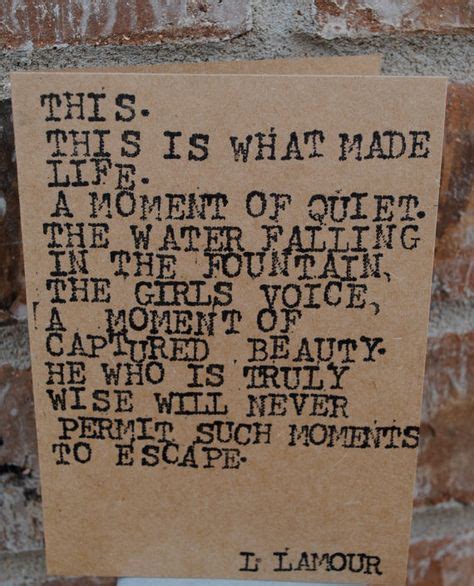 THIS.
THIS IS WHAT MADE
LIFE.
A MOMENT OF QUIET.
THE WATER FALLING
IN THE FOUNTAIN,
THE GIRLS VOICE,
A MOMENT OF
CAPTURED BEAUTY.
HE WHO IS TRULY
WISE WILL NEVER
PERMIT SUCH MOMENTS
TO ESCAPE.
L LAMOUR